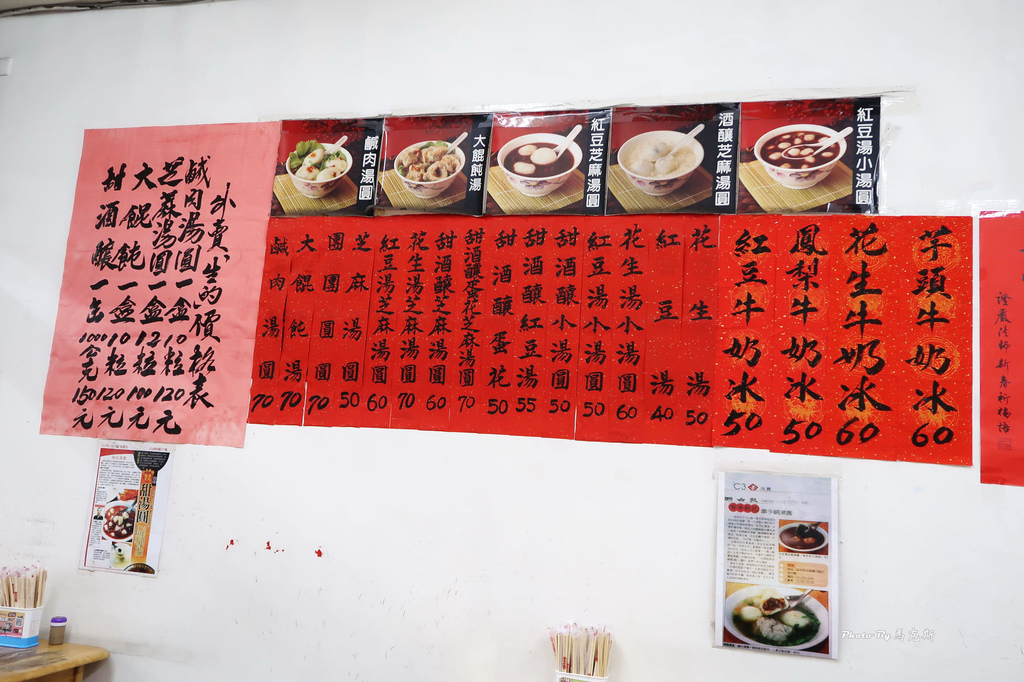 外賣(生的)價格表
鹹肉湯圓一盒10粒120元
芝蔴湯圓一盒12粒100元
大餛飩一盒10粒120元
甜酒釀一缶1000公克150元
鹹肉湯圓
大餛飩湯
紅豆芝麻湯圓
酒釀芝麻湯圓
紅豆湯小湯圓
鹹肉湯圓70
大餛飩湯70
圍圓70
芝麻湯圓50
紅豆湯芝麻湯圓60
花生湯芝麻湯圓70
甜酒釀芝麻湯圓60
甜酒釀蛋花芝麻湯圓70
甜酒釀蛋花50
甜酒釀紅豆湯55
甜酒釀小湯圓50
紅豆湯小湯圓50
花生湯小湯圓60
紅豆湯40
花生湯50
紅豆牛奶冰50
鳳梨牛奶冰50
花生牛奶冰60
芋頭牛奶冰60
證嚴法師 新春祈福
甜湯圓
C3
Photo By 馬克斯